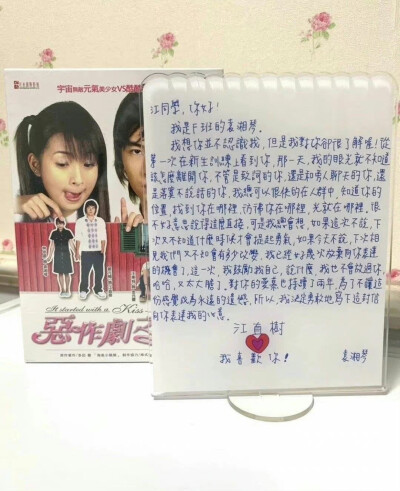 宇宙無敵元氣美少女VS酷酷
It started with a Kiss
惡作劇之
江同學,你好!
我是F班的袁湘琴。
我想你並不認識我,但是我對你卻很了解喔!從
第一次在新生訓練上看到你,那一天,我的眼光就不知道
該怎麼離開你,不管是致詞的你,還是和别人聊天的你,還
是落寞不說話的你,我總可以很快的在人群中,知道你的
位置,找到你在哪裡,彷彿你在哪裡,光就在哪裡,很
不好意思說得這麼直接,可是我總會想,如果這次不說,下
次又不知道什麼時候才會提起勇氣,如果今天不說,下次相
見我們又不知會有多少改變,我已經好幾次放棄向你表達
的機會了,這一次,我鼓勵我自己,說什麼,我也不會放過你,
哈哈,又太大膽了,對你的愛慕已持續了兩年,為了不讓這
份感覺成為永遠的遺憾,所以,我決定勇敢地寫下這封信
向你表達我的心意。
江直樹
我喜歡你! 袁湘琴